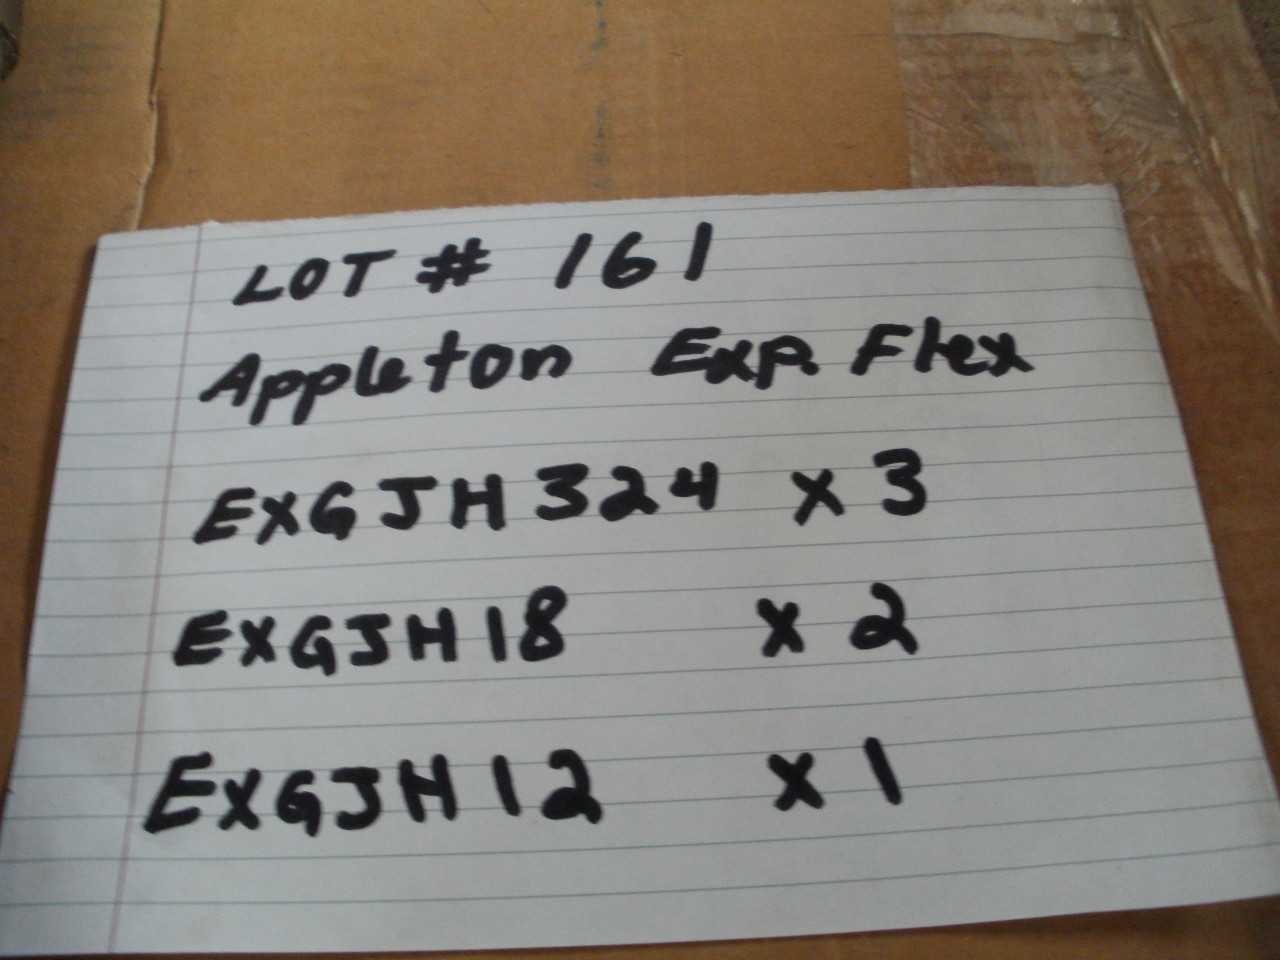 LOT # 161
Appleton Exp. Flex
EXGJH324 x 3
EXGJH18 x 2
EXGJH12 x 1